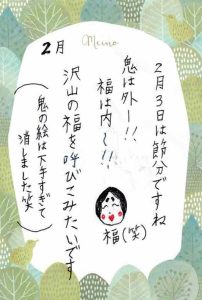 Memo
2月3日は節分ですね
鬼は外ー!!
福は内〜!!
福(笑)
2月
沢山の福を呼びこみたいです
(鬼の絵は下手すぎて
消しました笑)